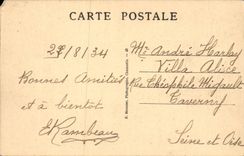 CARTE POSTALE
27/8/34
Bonnes Amitiés
et à bientôt
Mr André
Villa Alice
Rue Théophile
Taverny
Seine et Oise